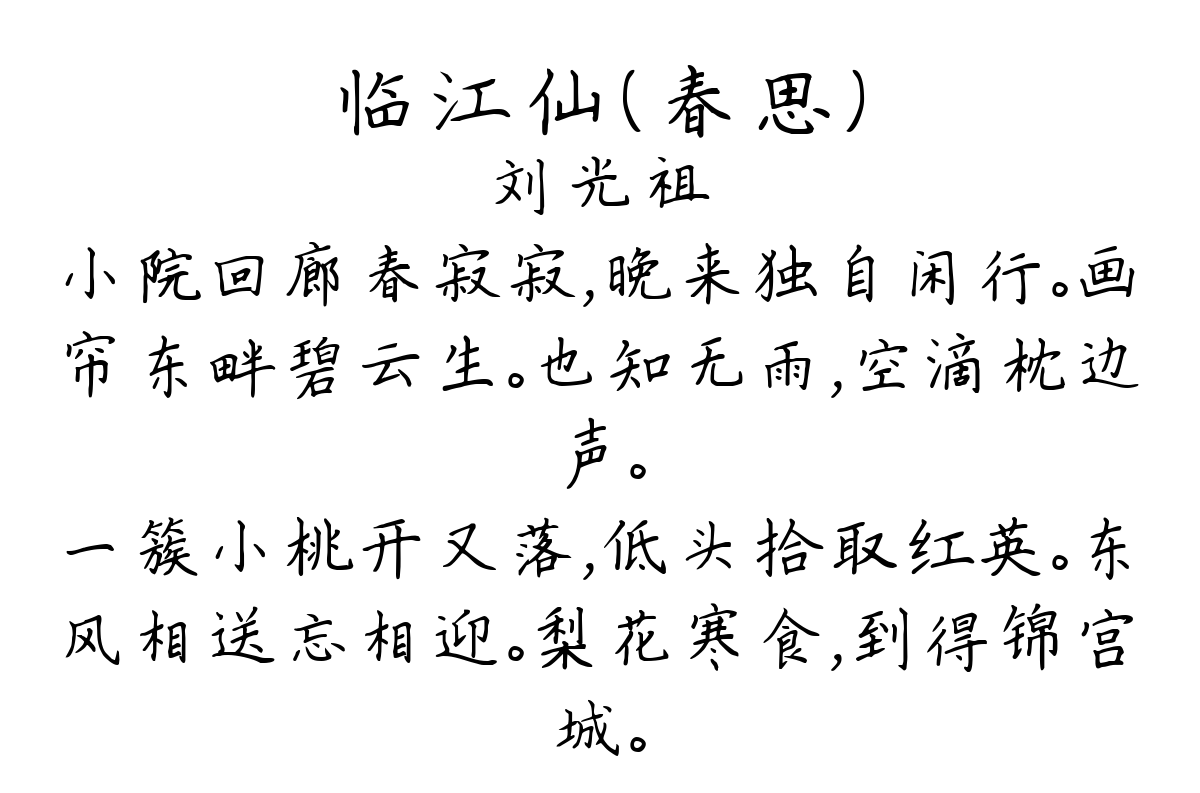 临江仙(春思)
刘光祖
小院回廊春寂寂,晚来独自闲行。画
帘东畔碧云生。也知无雨,空滴枕边
声。
一簇小桃开又落,低头拾取红英。东
风相送忘相迎。梨花寒食,到得锦宫
城。